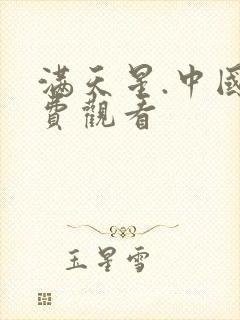 滿天星.中國
費觀看
玉星雪